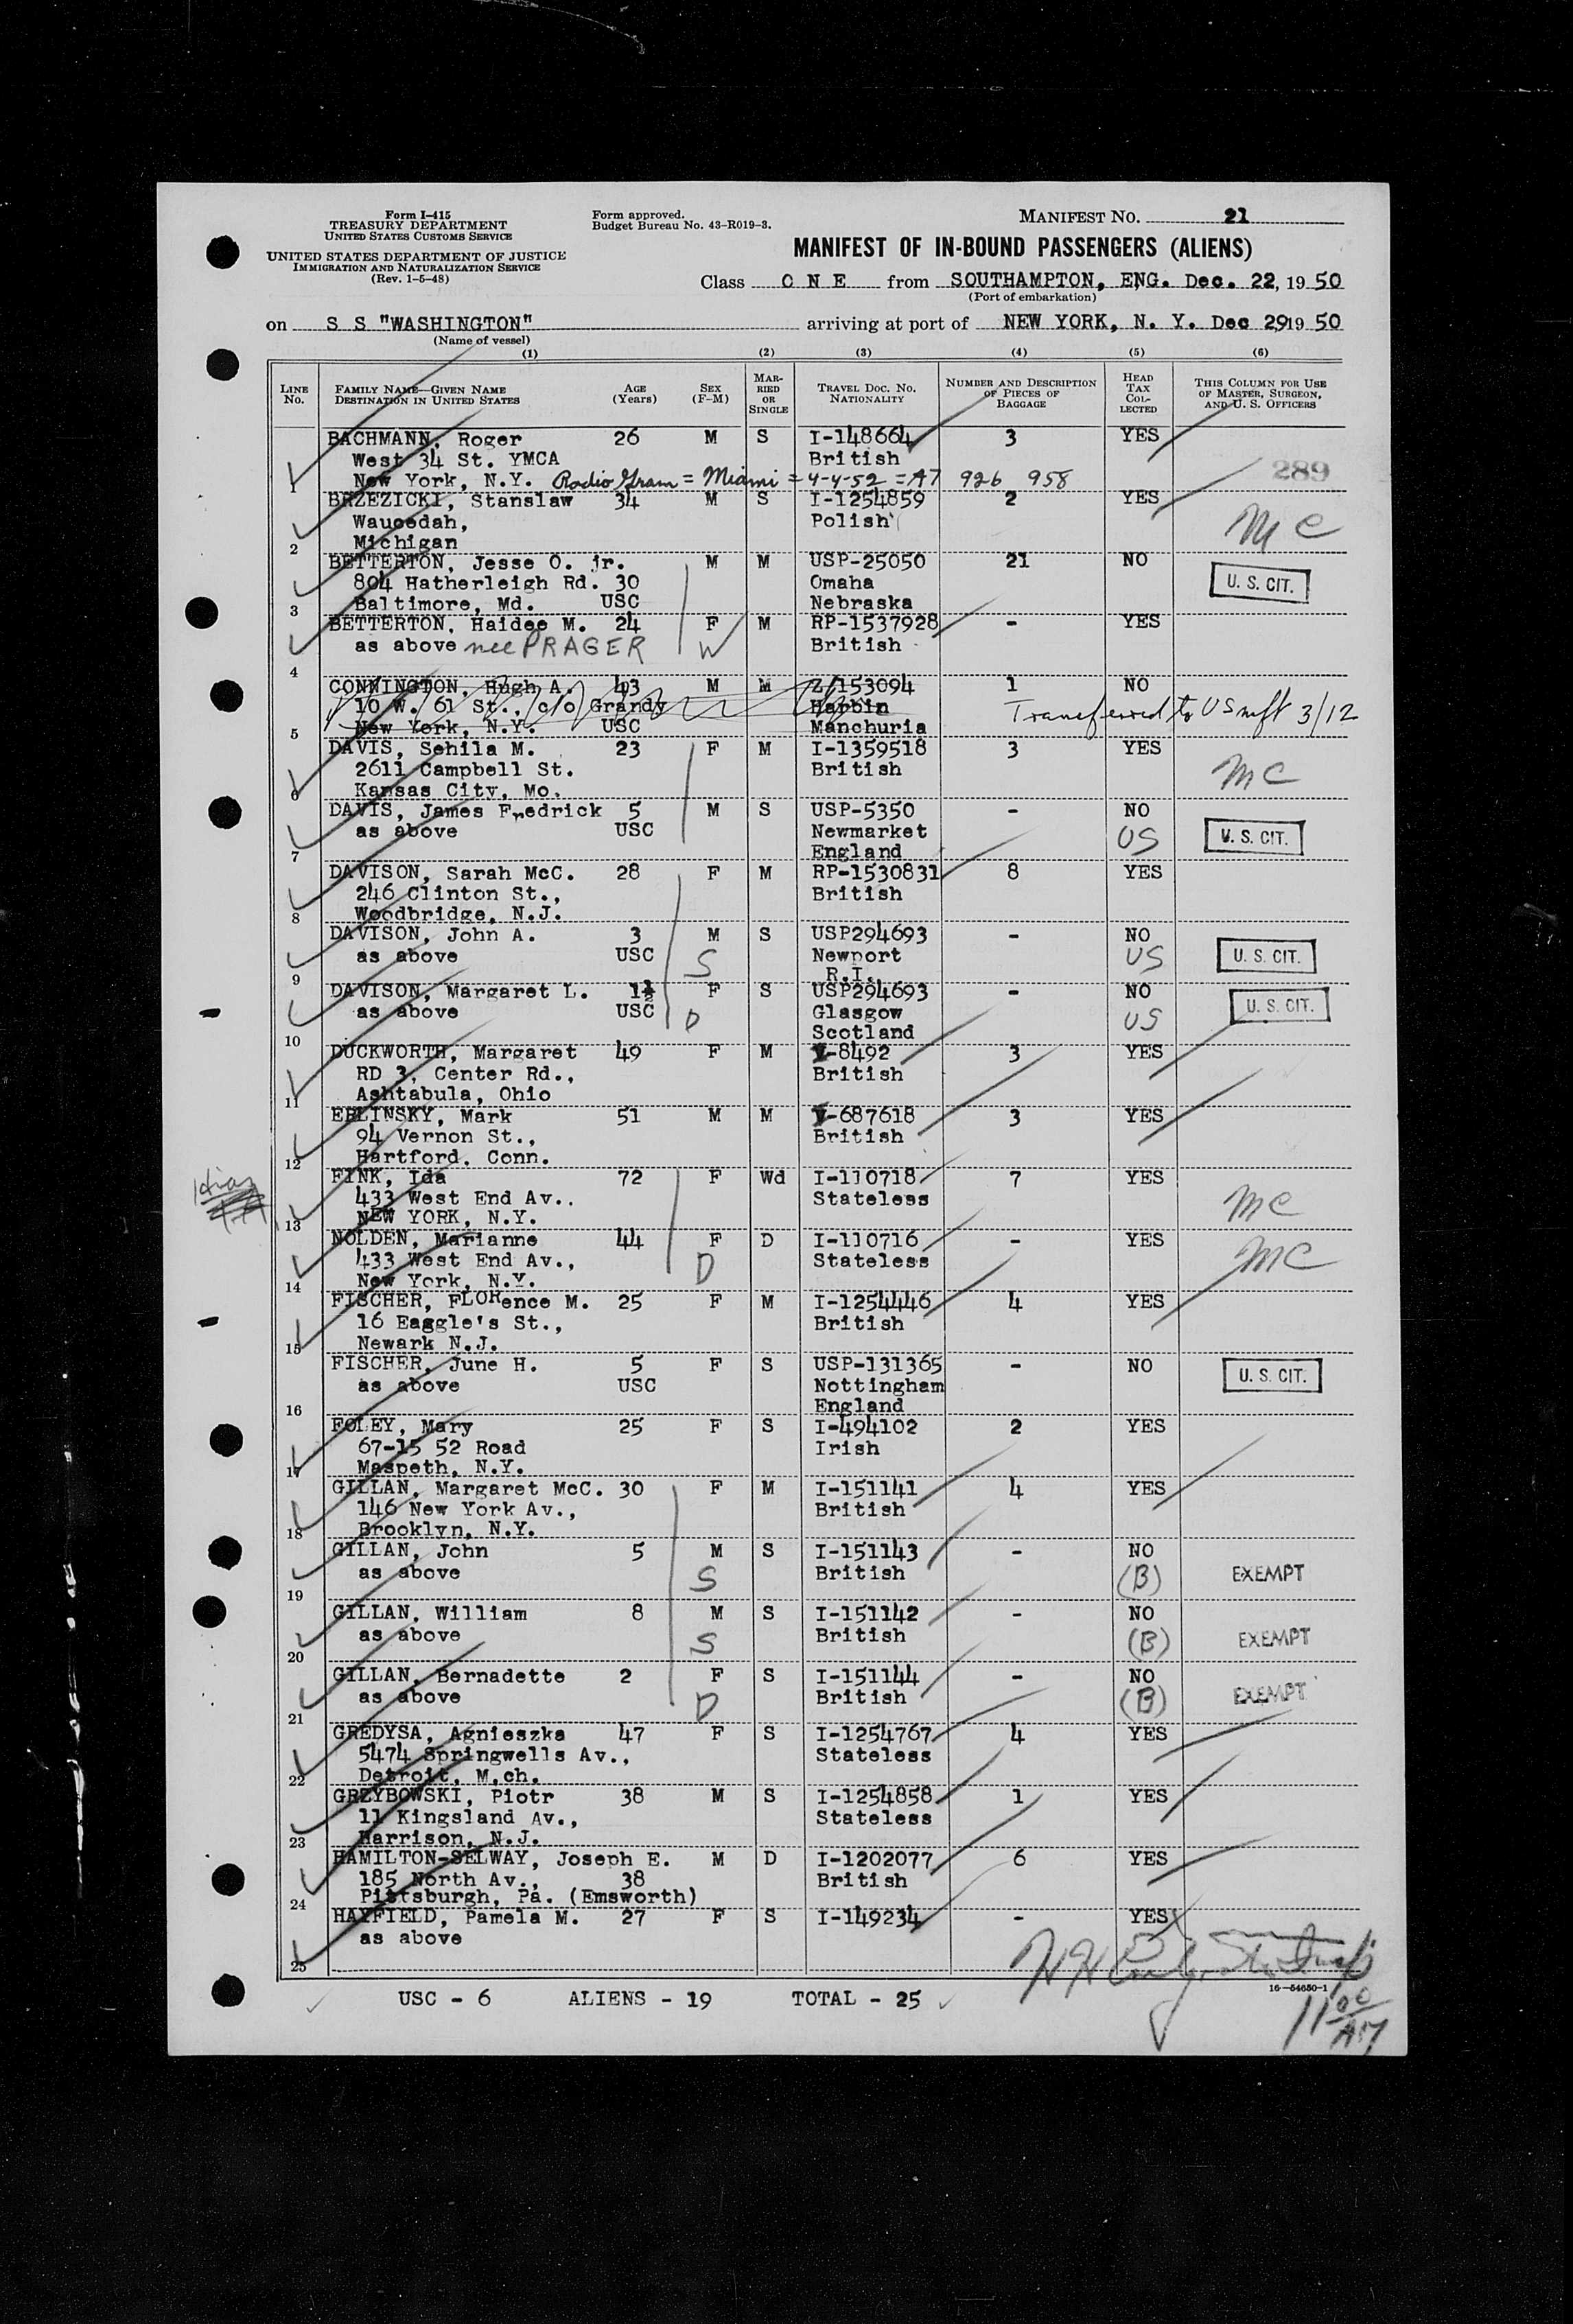 Form I-415
TREASURY DEPARTMENT
UNITED STATES CUSTOMS SERVICE
UNITED STATES DEPARTMENT OF JUSTICE
IMMIGRATION AND NATURALIZATION SERVICE
(Rev. 1-5-48)
Form approved.
Budget Bureau No. 43-R019-3.
MANIFEST No. 21
MANIFEST OF IN-BOUND PASSENGERS (ALIENS)
Class O N E from SOUTHAMPTON, ENG. Dec. 22, 19 50
(Port of embarkation)
on S S "WASHINGTON" arriving at port of NEW YORK, N. Y. Dec 29 19 50
(Name of vessel)
(1) (2) (3) (4) (5) (6)
LINE No. FAMILY NAME—GIVEN NAME DESTINATION IN UNITED STATES AGE (Years) SEX (F-M) MARRIED OR SINGLE TRAVEL DOC. NO. NATIONALITY NUMBER AND DESCRIPTION OF PIECES OF BAGGAGE HEAD TAX COLLECTED THIS COLUMN FOR USE OF MASTER, SURGEON, AND U. S. OFFICERS
BACHMANN, Roger 26 M S I-148664 3 YES
West 34 St. YMCA British
1 New York, N.Y. Radio Gram = Miami = 4-4-52 = A7 926 958 289
BRZEZICKI, Stanslaw 34 M S I-1254859 2 YES
Waucedah, Polish MC
2 Michigan
BETTERTON, Jesse O. jr. M M USP-25050 21 NO
804 Hatherleigh Rd. 30 Omaha U. S. CIT.
3 Baltimore, Md. USC Nebraska
BETTERTON, Haidee M. 24 F M RP-1537928 - YES
as above nee PRAGER W British
4
CONNINGTON, Hugh A. 43 M M Z/153094 1 NO
10 W. 61 St., c/o Grandy Harbin Transferred to US mft 3/12
5 New York, N.Y. USC Manchuria
DAVIS, Sehila M. 23 F M I-1359518 3 YES
2611 Campbell St. British MC
6 Kansas City, Mo.
DAVIS, James Fredrick 5 M S USP-5350 - NO
as above USC Newmarket US U. S. CIT.
7 England
DAVISON, Sarah McC. 28 F M RP-1530831 8 YES
246 Clinton St., British
8 Woodbridge, N.J.
DAVISON, John A. 3 M S USP294693 - NO
as above USC S Newport US U. S. CIT.
9 R.I.
DAVISON, Margaret L. 1½ F S USP294693 - NO
as above USC D Glasgow US U. S. CIT.
10 Scotland
DUCKWORTH, Margaret 49 F M V-8492 3 YES
RD 3, Center Rd., British
11 Ashtabula, Ohio
EBLINSKY, Mark 51 M M V-687618 3 YES
94 Vernon St., British
12 Hartford. Conn.
FINK, Ida 72 F Wd I-110718 7 YES
Hias 433 West End Av.. Stateless MC
13 NEW YORK, N.Y.
NOLDEN, Marianne 44 F D I-110716 - YES
433 West End Av., D Stateless MC
14 New York, N.Y.
FISCHER, FLORence M. 25 F M I-1254446 4 YES
16 Eaggle's St., British
15 Newark N.J.
FISCHER, June H. 5 F S USP-131365 - NO
as above USC Nottingham U. S. CIT.
16 England
FOLEY, Mary 25 F S I-494102 2 YES
67-15 52 Road Irish
17 Maspeth, N.Y.
GILLAN, Margaret McC. 30 F M I-151141 4 YES
146 New York Av., British
18 Brooklyn, N.Y.
GILLAN, John 5 M S I-151143 - NO
as above S British (B) EXEMPT
19
GILLAN, William 8 M S I-151142 - NO
as above S British (B) EXEMPT
20
GILLAN, Bernadette 2 F S I-151144 - NO
as above D British (B) EXEMPT
21
GREDYSA, Agnieszka 47 F S I-1254767 4 YES
5474 Springwells Av., Stateless
22 Detroit, M.ch.
GRZYBOWSKI, Piotr 38 M S I-1254858 1 YES
11 Kingsland Av., Stateless
23 Harrison, N.J.
HAMILTON-SELWAY, Joseph E. M D I-1202077 6 YES
185 North Av., 38 British
24 Pittsburgh, Pa. (Emsworth)
HAYFIELD, Pamela M. 27 F S I-149234 - YES
as above
25
16-54650-1
USC - 6 ALIENS - 19 TOTAL - 25
11 00 AM